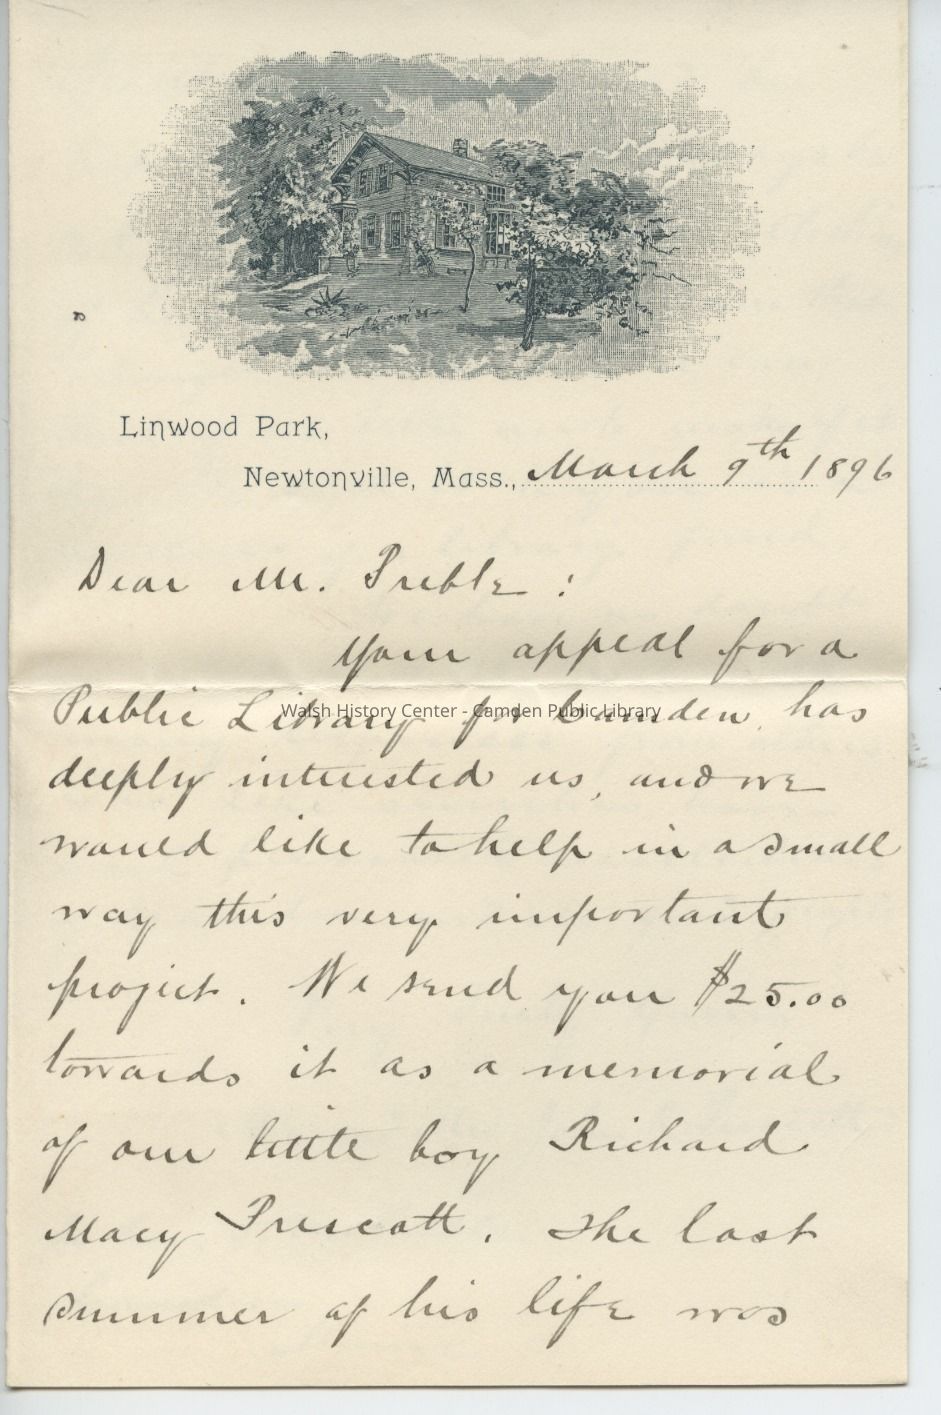 Linwood Park,
Newtonville, Mass., March 9th 1896
Dear Mr. Preble :
Your appeal for a
Public Library for Camden, has
Walsh History Center - Camden Public Library
deeply interested us, and we
would like to help in a small
way this very important
project. We send you $25.00
towards it as a memorial
of our little boy Richard
Macy Prescott. The last
summer of his life was